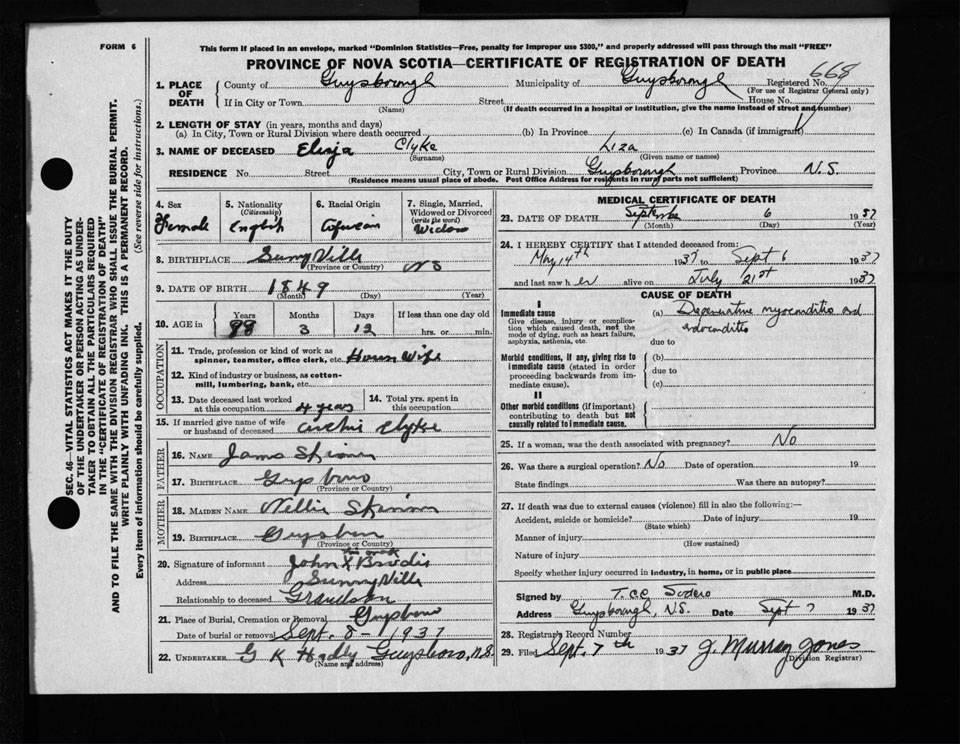 FORM 6
This form if placed in an envelope, marked "Dominion Statistics—Free, penalty for improper use $300," and properly addressed will pass through the mail "FREE"
PROVINCE OF NOVA SCOTIA—CERTIFICATE OF REGISTRATION OF DEATH
1. PLACE OF DEATH
County of Guysborough Municipality of Guysborough Registered No. 668
(For use of Registrar General only)
If in City or Town Street House No.
(Name) (If death occurred in a hospital or institution, give the name instead of street and number)
2. LENGTH OF STAY (in years, months and days)
(a) In City, Town or Rural Division where death occurred (b) In Province (c) In Canada (if immigrant)
3. NAME OF DECEASED Clyke Liza
(Surname) (Given name or names)
RESIDENCE No Street City, Town or Rural Division Guysborough Province N.S.
(Residence means usual place of abode. Post Office Address for residents in rural parts not sufficient)
4. Sex
Female
5. Nationality
(Citizenship)
English
6. Racial Origin
African
7. Single, Married, Widowed or Divorced
(write the word)
Widow
8. BIRTHPLACE Sunny Ville NS
(Province or Country)
9. DATE OF BIRTH 1849
(Month) (Day) (Year)
10. AGE in
Years Months Days If less than one day old
88 3 12 hrs. or min.
OCCUPATION
11. Trade, profession or kind of work as spinner, teamster, office clerk, etc. House Wife
12. Kind of industry or business, as cotton-mill, lumbering, bank, etc.
13. Date deceased last worked at this occupation 4 years
14. Total yrs. spent in this occupation
15. If married give name of wife or husband of deceased Archie Clyke
FATHER
16. NAME James Skinner
17. BIRTHPLACE Guysboro
(Province or Country)
MOTHER
18. MAIDEN NAME Nellie Skinner
19. BIRTHPLACE Guysboro
(Province or Country)
20. Signature of informant John X Brodie
his mark
Address Sunny Ville
Relationship to deceased Grandson
21. Place of Burial, Cremation or Removal Guysboro
Date of burial or removal Sept. 8 - 1937
22. UNDERTAKER G K Hadly Guysboro, N.S.
(Name and address)
MEDICAL CERTIFICATE OF DEATH
23. DATE OF DEATH September 6 1937
(Month) (Day) (Year)
24. I HEREBY CERTIFY that I attended deceased from:
May 14th 1937 to Sept 6 1937
and last saw her alive on July 21st 1937
CAUSE OF DEATH
I
Immediate cause
Give disease, injury or complication which caused death, not the mode of dying, such as heart failure, asphyxia, asthenia, etc.
(a) Degenerative myocarditis and endocarditis
due to
Morbid conditions, if any, giving rise to immediate cause (stated in order proceeding backwards from immediate cause).
(b)
due to
(c)
II
Other morbid conditions (if important) contributing to death but not causally related to immediate cause.
25. If a woman, was the death associated with pregnancy? No
26. Was there a surgical operation? No Date of operation 19
State findings Was there an autopsy?
27. If death was due to external causes (violence) fill in also the following:—
Accident, suicide or homicide? Date of injury 19
(State which)
Manner of injury
(How sustained)
Nature of injury
Specify whether injury occurred in industry, in home, or in public place
Signed by M.D.
Address Guysborough, N.S. Date Sept 7 1937
28. Registrar's Record Number
29. Filed Sept. 7th 1937 J. Murray Jones
(Division Registrar)
SEC. 46—VITAL STATISTICS ACT MAKES IT THE DUTY
OF THE UNDERTAKER OR PERSON ACTING AS UNDERTAKER TO OBTAIN ALL THE PARTICULARS REQUIRED
IN THE "CERTIFICATE OF REGISTRATION OF DEATH"
AND TO FILE THE SAME WITH THE DIVISION REGISTRAR WHO SHALL ISSUE THE BURIAL PERMIT.
WRITE PLAINLY WITH UNFADING INK. THIS IS A PERMANENT RECORD.
Every item of information should be carefully supplied. (See reverse side for instructions.)